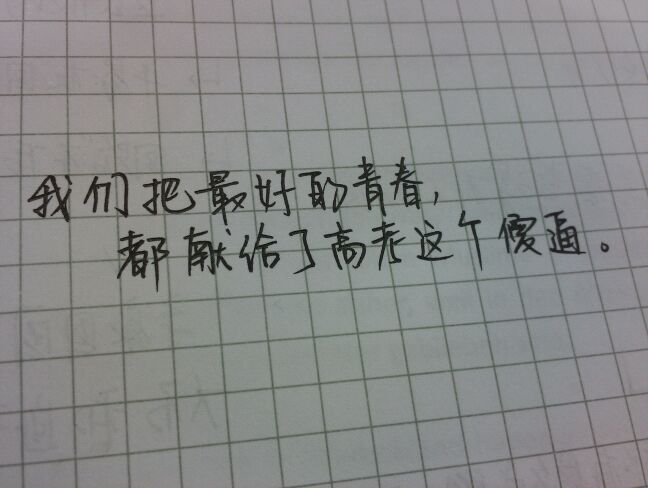 我们把最好的青春,
都献给了高考这个傻逼。